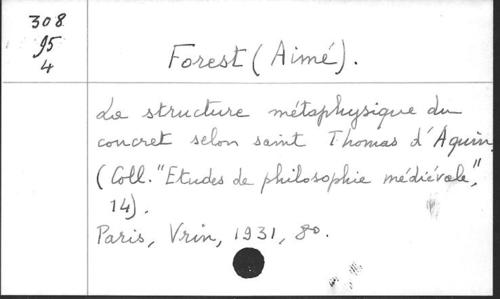 308
95
4
Forest (Aimé).
La structure métaphysique du
concret selon saint Thomas d'Aquin,
(Coll. "Etudes de philosophie médiévale",
14).
Paris, Vrin, 1931, 8º.